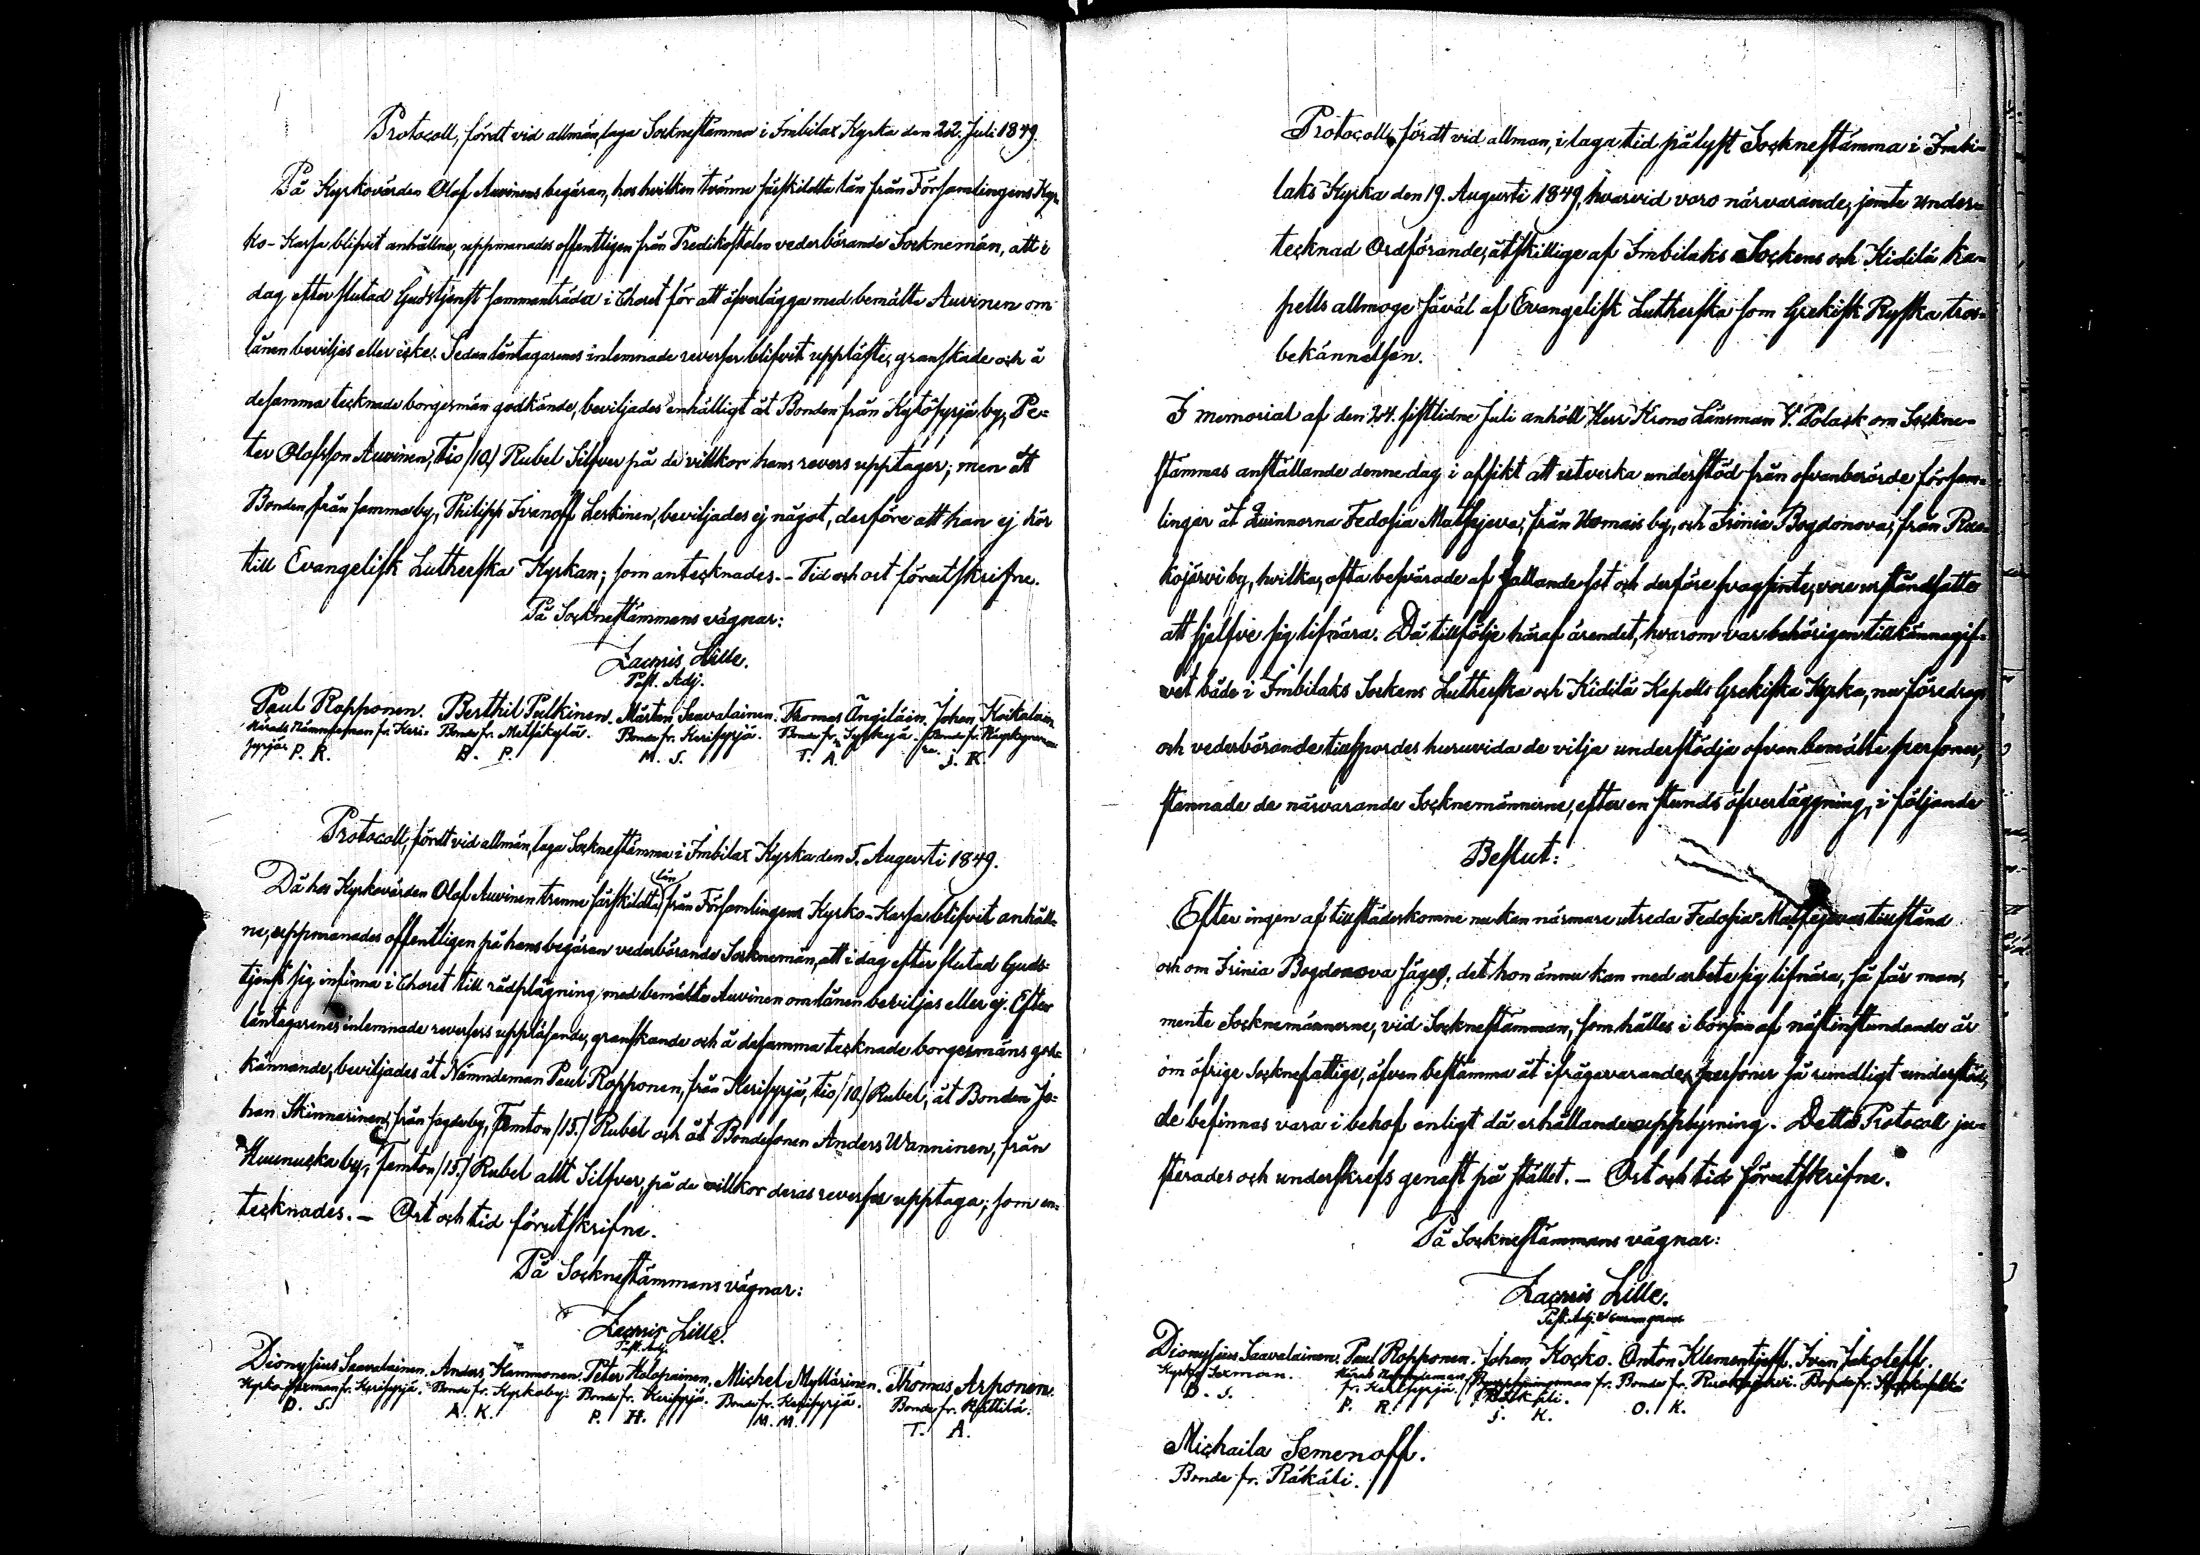 Protocoll, fördt vid allmän, laga Sockneſtämma i Imbilax Kyrka den 22. Juli 1849.
På Kyrkovärden Olof Auvinens begäran, hos hvilken tvänne särſkildta lån från Förſamlingens Kyr-
ko-Kasſa blifvit anhållne, uppmanades offentligen från Predikoſtolen vederbörande Socknemän, att i
dag efter ſlutad Gudstjenſt ſammanträda i Choret för att öfverlägga med bemälte Auvinen om
lånen beviljas eller icke. Sedan låntagarenes inlemnade reverſer blifvit uppläſte, granſkade och å
deſamma tecknade borgesmän godkände, beviljades enhälligt åt Bonden från Kytöſyrjä by, Pe-
ter Olofsſon Auvinen, Tio /10/ Rubel Silfver på de villkor hans revers upptager; men åt
Bonden, från ſamma by, Philipp Ivanoff Leskinen, beviljades ej något, derföre att han ej hör
till Evangeliſk Lutherſka Kyrkan; ſom antecknades. - Tid och ort förutſkrifne.
På Sockneſtämmans vägnar:
Zacris Lille.
Paſt. Adj.
Paul Ropponen. Berthil Pulkinen. Mårten Saavalainen. Thomas Ängiläin. Johan Koikalain
Härads Nämndeman fr. Keri- Bonde fr. Metſäkylä. Bonde fr. Keriſyrjä. Bonde fr. Syſkyjä. Bonde fr.
ſyrjä. P. R. B. P. M. S. T. Ä. J. K.
Protocoll, fördt vid allmän, laga Sockneſtämma i Imbilax Kyrka den 5. Auguſti 1849.
Då hos Kyrkovärden Olof Auvinen trenne ſärſkildta lån från Förſamlingens Kyrko-Kasſa blifvit anhåll-
ne, uppmanades offentligen på hans begäran vederbörande Socknemän, att i dag efter ſlutad Guds-
tjenſt ſig infinna i Choret till rådplägning med bemälte Auvinen om lånen beviljas eller ej. Efter
låntagarenes inlemnade reverſers uppläſande, granſkande och å deſamma tecknade borgesmäns god-
kännande, beviljades åt Nämndeman Paul Ropponen, från Keriſyrjä, Tio /10/ Rubel, åt Bonden Jo-
han Skinnarinen, från by, Femton /15/ Rubel och åt Bondeſonen Anders Wanninen, från
Huunucka by, Femton /15/ Rubel allt Silfver, på de villkor deras reverſer upptaga; ſom an-
tecknades. - Ort och tid förutſkrifne.
På Sockneſtämmans vägnar:
Zacris Lille.
Paſt. Adj.
Dionyſius Saavalainen. Anders Kammonen. Peter Holopainen. Michel Myllärinen. Thomas Arponen.
Kyrko Sexman fr. Keriſyrjä. Bonde fr. Kyrkoby. Bonde fr. Keriſyrjä. Bonde fr. Keriſyrjä. Bonde fr. Rättilä.
D. S. A. K. P. H. M. M. T. A.
Protocoll, fördt vid allmän, i laga tid pålyſt Sockneſtämma i Imbi-
laks Kyrka den 19. Auguſti 1849, hvarvid voro närvarande, jemte under-
tecknad Ordförande, åtſkillige af Imbilaks Sockens och Kidilä ka-
pells allmoge såväl af Evangeliſk Lutherſka ſom Grekiſk Ryſka tros-
bekännelſen.
I memorial af den 24. ſiſtlidne Juli anhöll Herr Krono Länsman V. Polack om Sockne-
ſtämmas anſtällande denne dag i afſikt att utverka underſtöd från ofvanberörde förſam-
lingar åt Quinnorna Fedoſia Matfejeva, från Uomais by, och Irinia Bogdonova, från Ruo-
kojärvi by, hvilka, ofta beſvärade af fallande ſot och derföre ſvagſinte, vore urſtåndſatte
att ſjelfve ſig lifnära. Då tillfölje häraf ärendet, hvarom var behörigen tillkännagif-
vet både i Imbilaks Sockens Lutherſka och Kidilä Kapells Grekiſka Kyrka, nu föredrogs
och vederbörande tillſpordes huruvida de vilja underſtödja ofvanbemälte perſoner,
ſtannade de närvarande Socknemännerne, efter en ſtunds öfverläggning, i följande
Beſlut:
Efter ingen af tillſtädeskomne nu kan närmare utreda Fedoſia Matfejevas tillſtånd
och om Irinia Bogdonova ſäges, det hon ännu kan med arbete ſig lifnära, ſå får man,
mente Socknemännerne, vid Sockneſtämman, ſom hålles i början af näſtinſtundande år
om öfrige Sockneſattige, äfven beſtämma åt ifrågavarande perſoner ſå rundligt underſtöd,
de befinnas vara i behof enligt då erhållande upplysning. Detta Protocoll ju-
ſterades och underſkrefs genaſt på ſtället. - Ort och tid förutſkrifne.
På Sockneſtämmans vägnar:
Zacris Lille.
Paſt. Adj.
Dionyſius Saavalainen. Paul Ropponen. Johan Kocko. Onton Klementjeff. Ivan Jakoleff.
Kyrko Sexman. Härads Nämndeman fr. Bonde fr. Ruokojärvi. Bonde fr.
D. S. fr. Keriſyrjä.
P. R. J. K. O. K.
Michaila Semenoff.
Bonde fr. Räkäli.